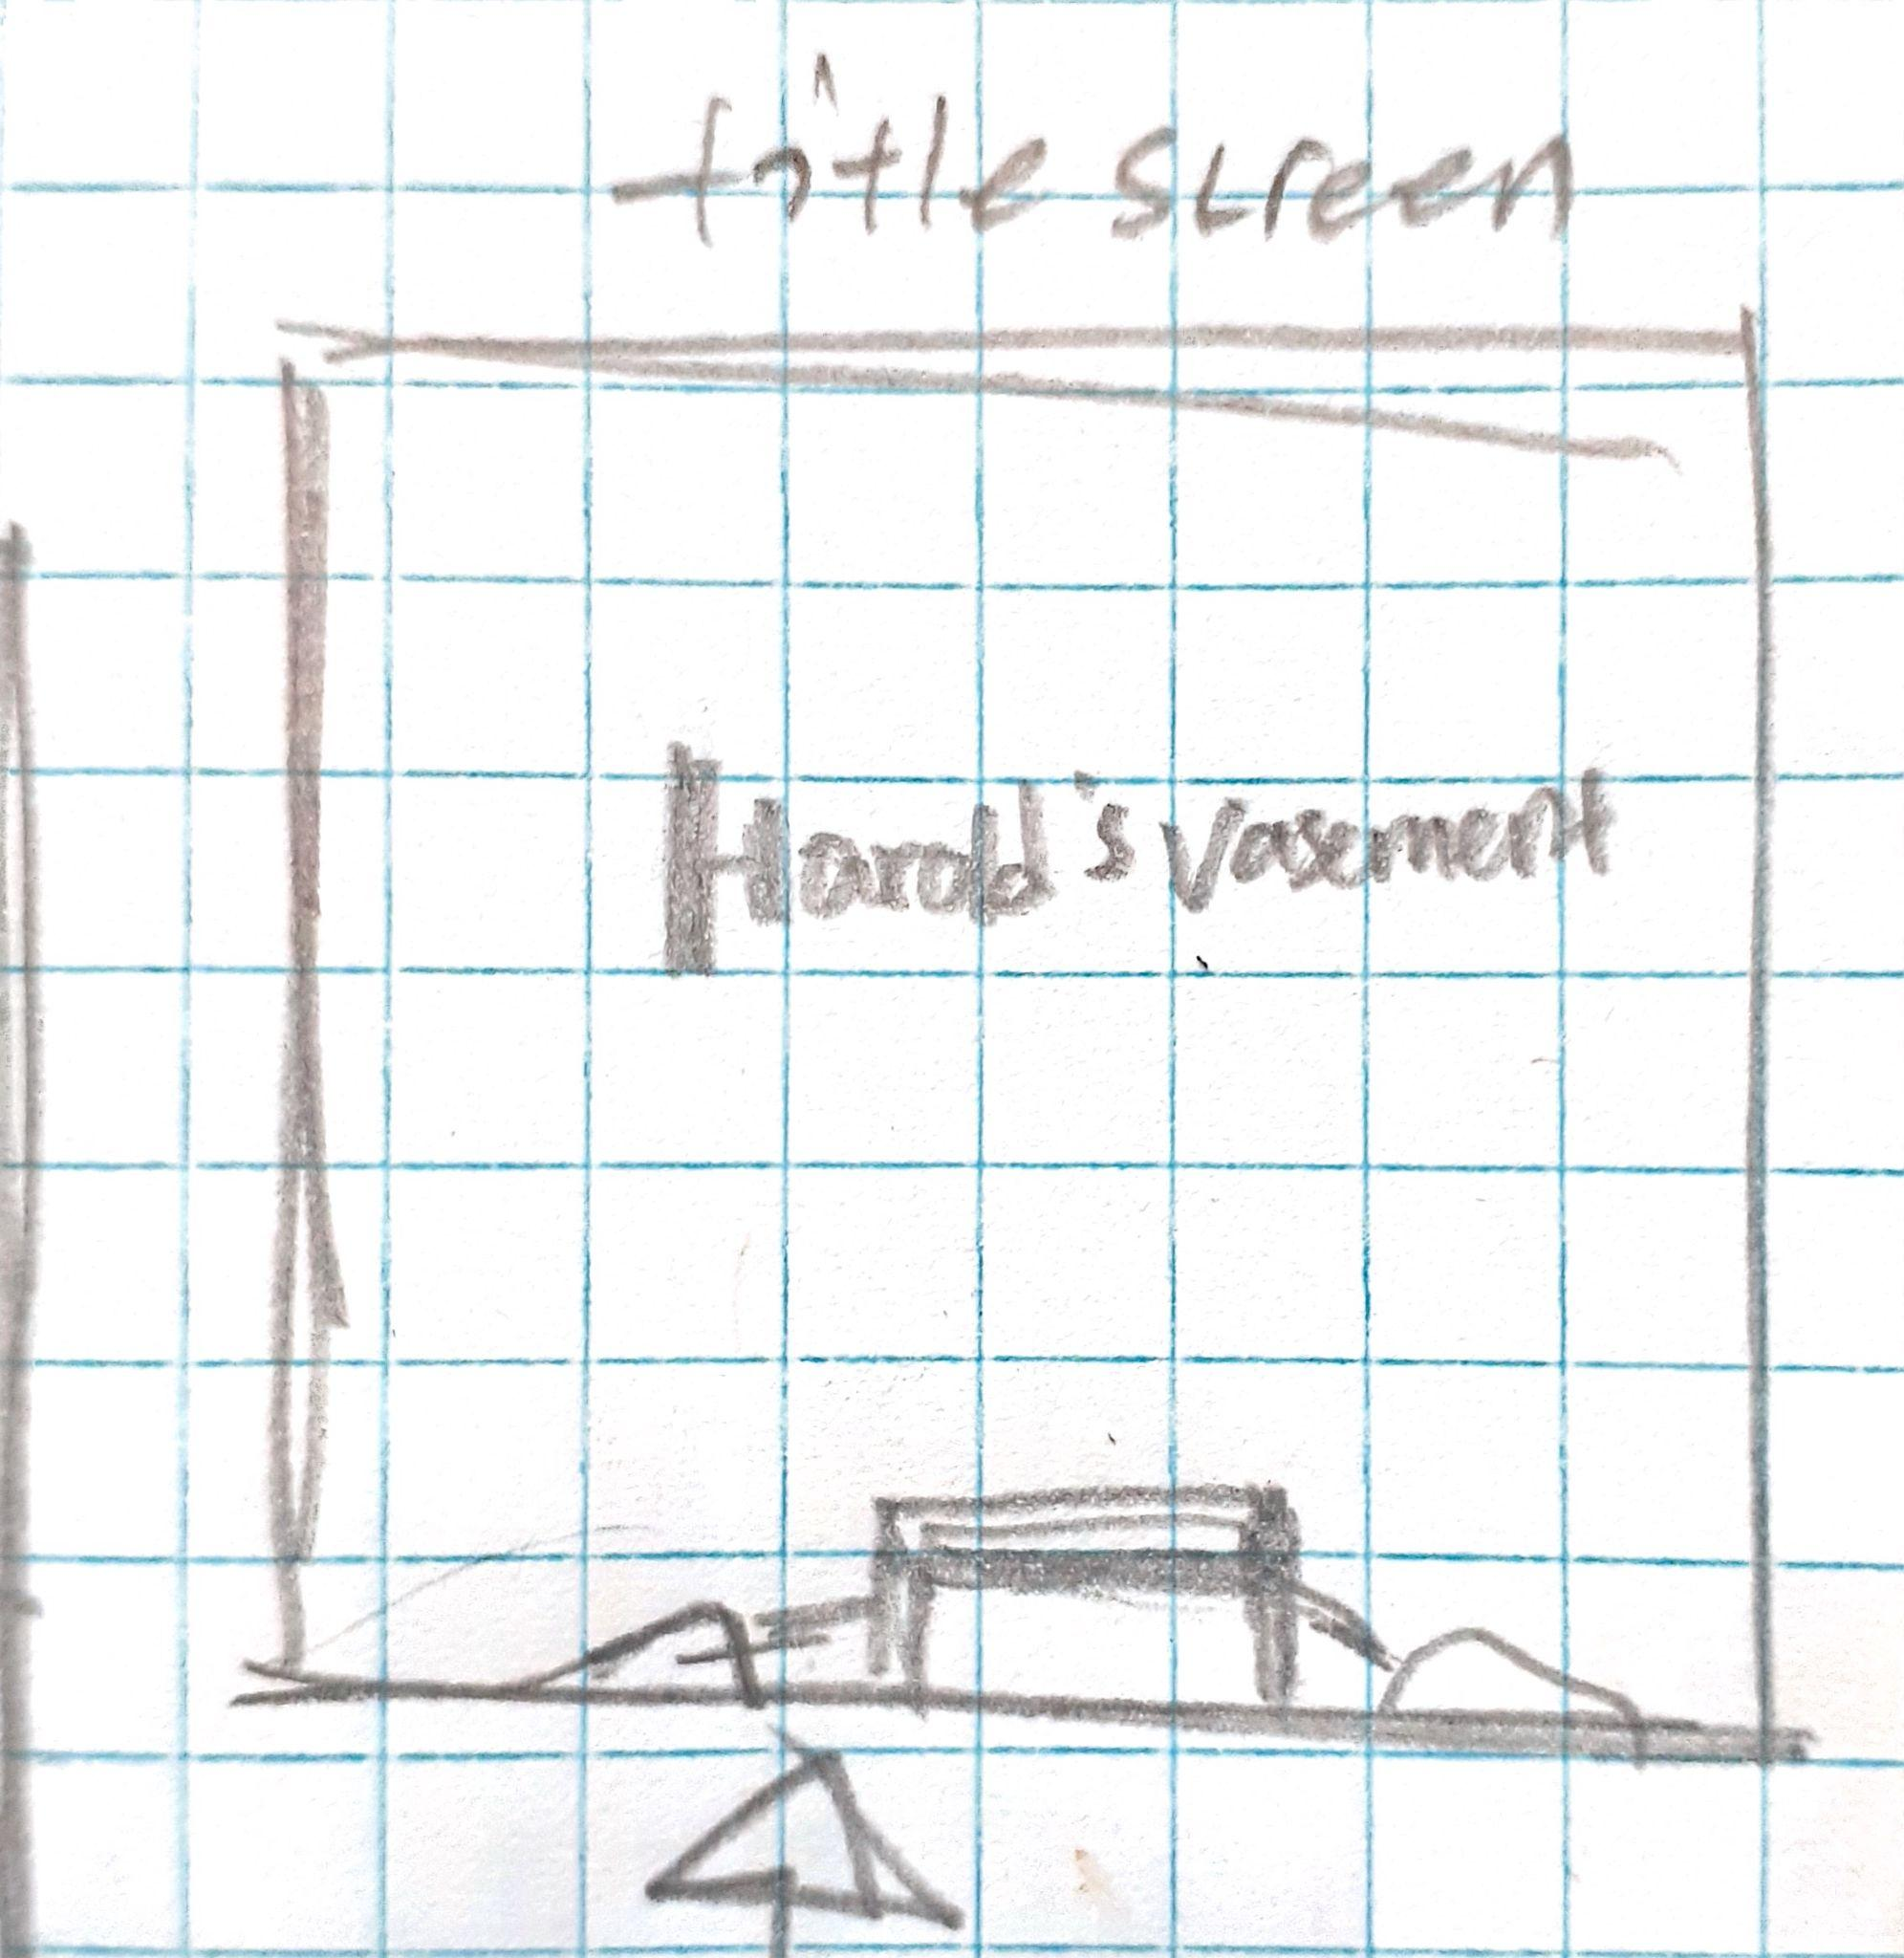 title screen
Harold's Vasement